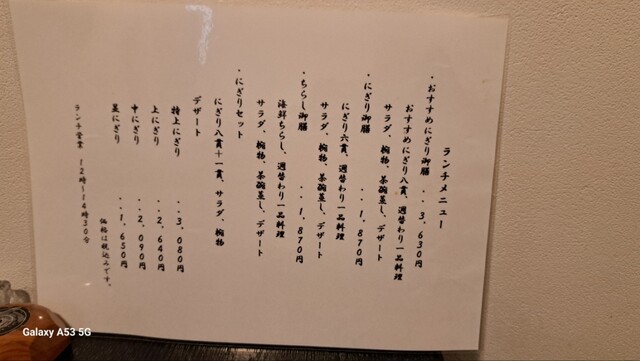 ランチメニュー
・おすすめにぎり御膳 ・・3,630円
おすすめにぎり八貫、週替わり一品料理
サラダ、椀物、茶碗蒸し、デザート
・にぎり御膳 ・・1,870円
にぎり六貫、週替わり一品料理
サラダ、椀物、茶碗蒸し、デザート
・ちらし御膳 ・・1,870円
海鮮ちらし、週替わり一品料理
サラダ、椀物、茶碗蒸し、デザート
・にぎりセット
にぎり八貫+一貫、サラダ、椀物
デザート
特上にぎり ・・3,080円
上にぎり ・・2,640円
中にぎり ・・2,090円
並にぎり ・・1,650円
価格は税込みです。
ランチ営業 12時～14時30分
Galaxy A53 5G